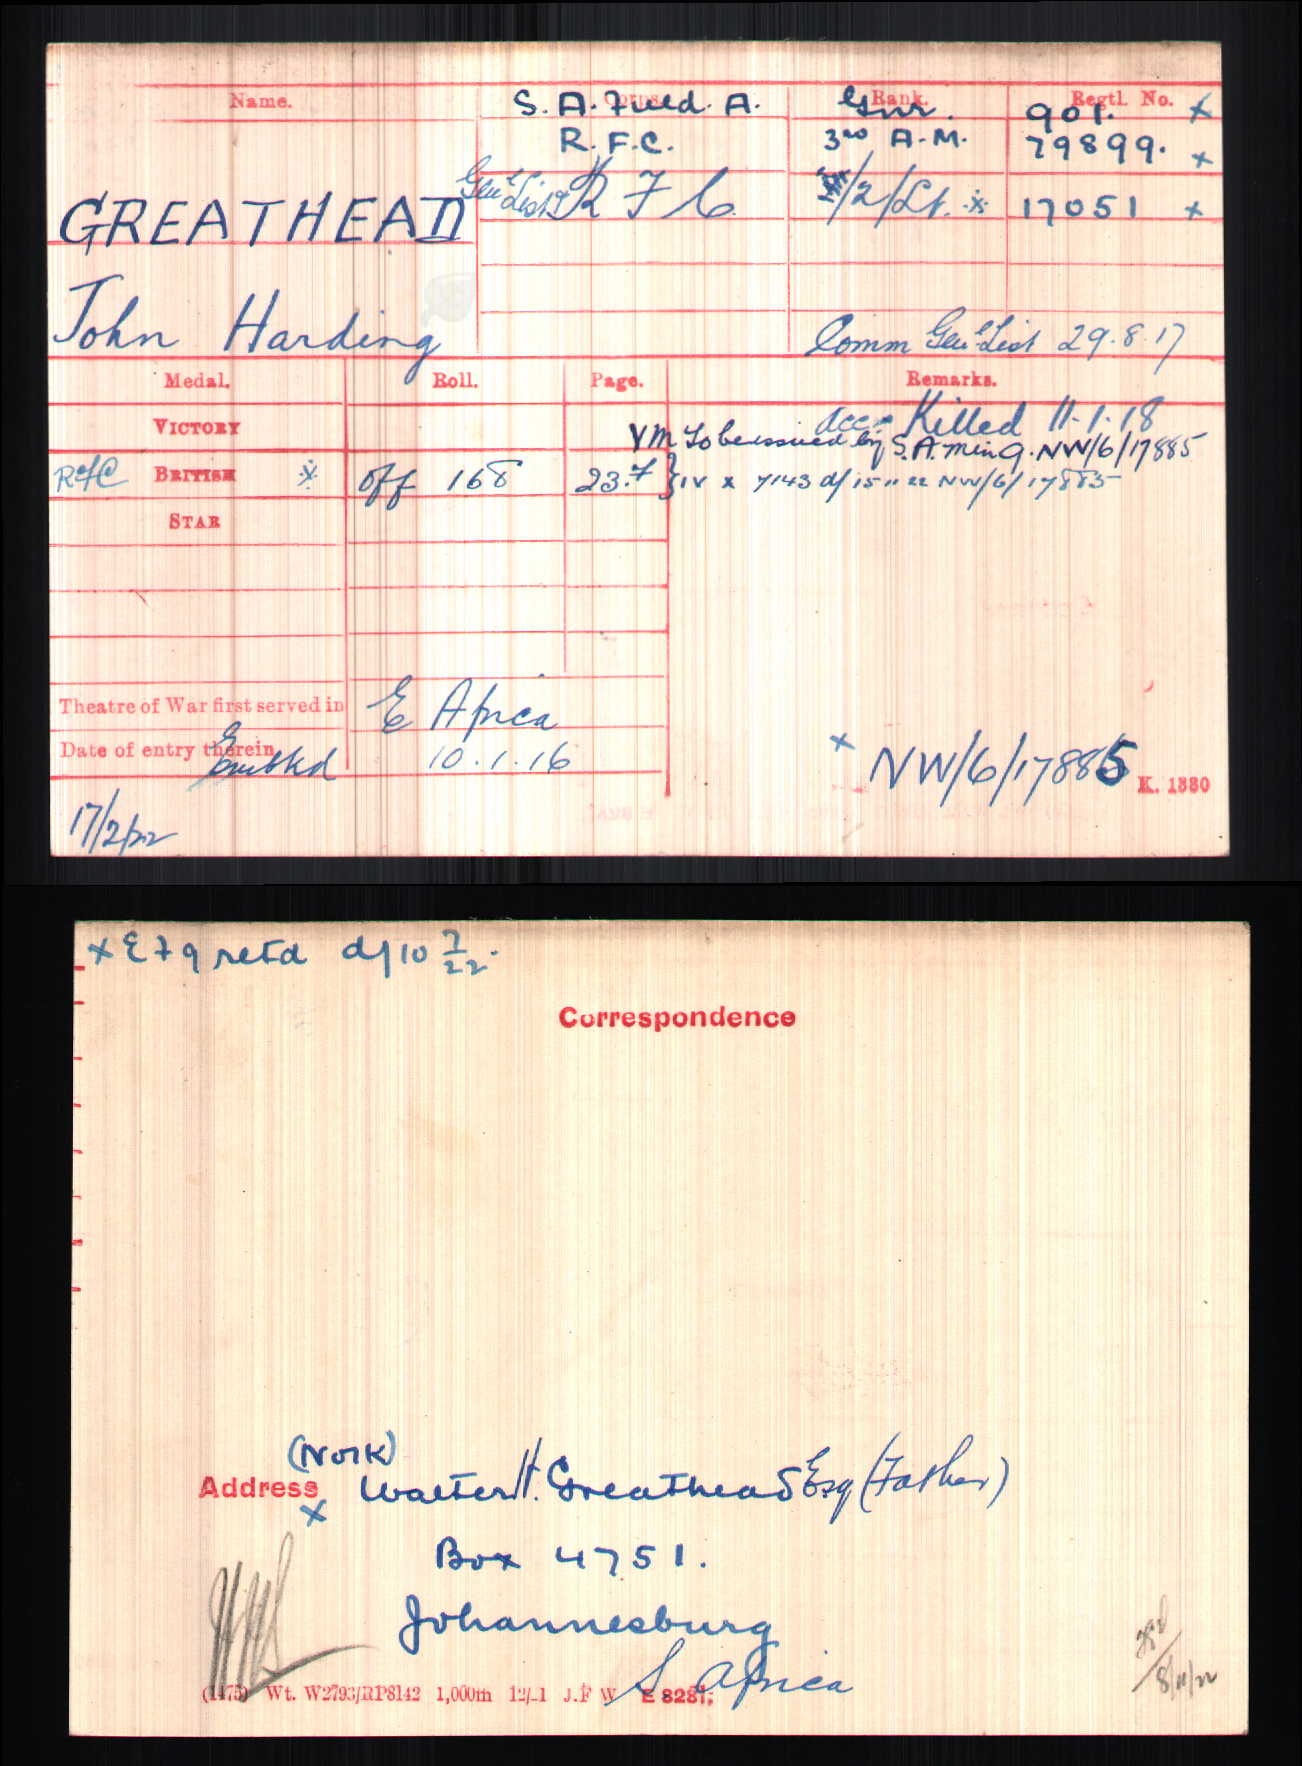 Name. Corps. Rank. Regtl. No.
S. A. Field. A. Gnr. 901. x
R. F. C. 3rd A-M. 79899. x
Genl List & R F C 2/Lt. 17051 x
GREATHEAD
John Harding
Comm Genl List 29.8.17
Medal. Roll. Page. Remarks.
VICTORY accy Killed 11.1.18
VM to be issued by S.A. Min Q. NW/6/17885
RFC BRITISH off 168 23.7 } IV x 7143 d/ 15 11 22 NW/6/17885
STAR
Theatre of War first served in E Africa
Date of entry therein 10.1.16
Embkd
x NW/6/17885 K. 1380
17/2/22
x E79 retd d/10 7/22.
Correspondence
(NofK)
Address Walter H. Greathead Esq (Father)
x
Box 4751.
Johannesburg
S Africa
(1475) Wt. W2793/RP8142 1,000m 12/-1 J.F W E 8281.
8/11/22